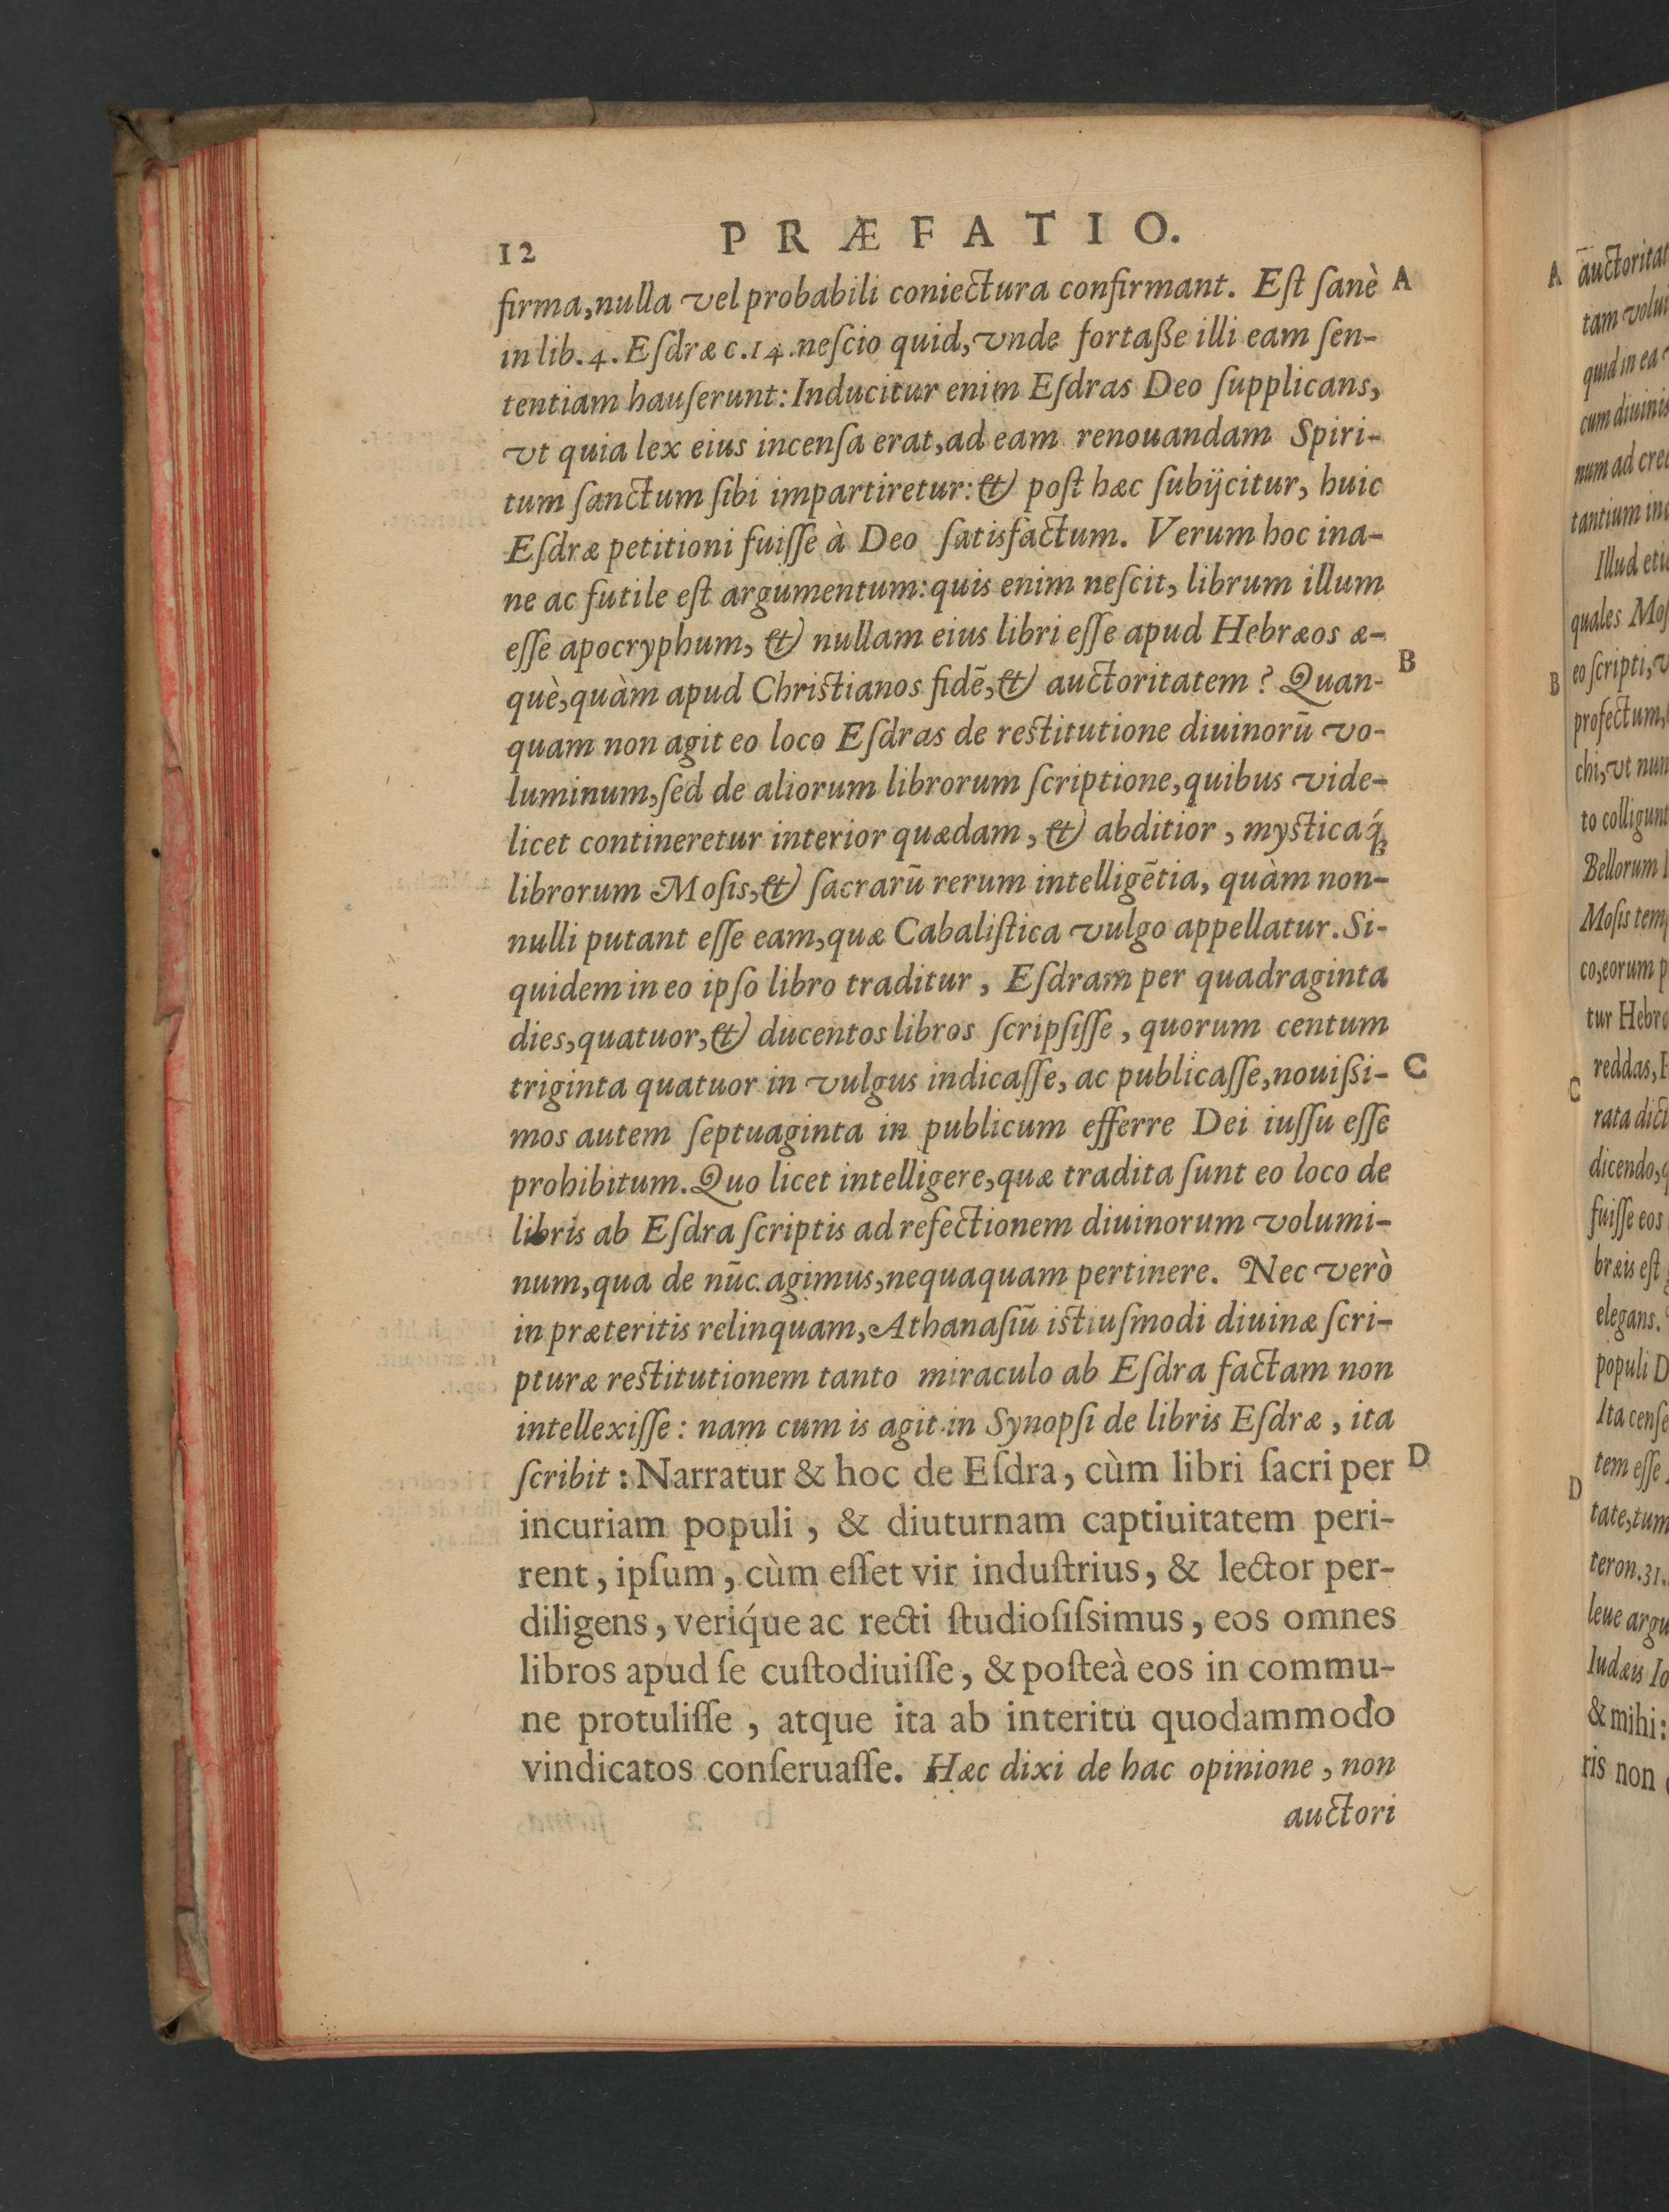 12 PRÆFATIO.
firma, nulla vel probabili coniectura confirmant. Eſt ſanè A
in lib. 4. Eſdræ c. 14. neſcio quid, vnde fortaße illi eam ſen-
tentiam hauſerunt: Inducitur enim Eſdras Deo ſupplicans,
vt quia lex eius incenſa erat, ad eam renouandam Spiri-
tum ſanctum ſibi impartiretur: & poſt hæc ſubijcitur, huic
Eſdræ petitioni fuiſſe à Deo ſatisfactum. Verum hoc ina-
ne ac futile eſt argumentum: quis enim neſcit, librum illum
eſſe apocryphum, & nullam eius libri eſſe apud Hebræos æ-
què, quàm apud Chriſtianos fidẽ, & auctoritatem? Quan- B
quam non agit eo loco Eſdras de reſtitutione diuinorũ vo-
luminum, ſed de aliorum librorum ſcriptione, quibus vide-
licet contineretur interior quædam, & abditior, myſticaq́;
librorum Moſis, & ſacrarũ rerum intelligẽtia, quàm non-
nulli putant eſſe eam, quæ Cabaliſtica vulgo appellatur. Si-
quidem in eo ipſo libro traditur, Eſdram per quadraginta
dies, quatuor, & ducentos libros ſcripſiſſe, quorum centum
triginta quatuor in vulgus indicaſſe, ac publicaſſe, nouißi- C
mos autem ſeptuaginta in publicum efferre Dei iuſſu eſſe
prohibitum. Quo licet intelligere, quæ tradita ſunt eo loco de
libris ab Eſdra ſcriptis ad refectionem diuinorum volumi-
num, qua de nũc agimus, nequaquam pertinere. Nec verò
in præteritis relinquam, Athanaſiũ iſtiuſmodi diuinæ ſcri-
pturæ reſtitutionem tanto miraculo ab Eſdra factam non
intellexiſſe: nam cum is agit in Synopſi de libris Eſdræ, ita
ſcribit: Narratur & hoc de Eſdra, cùm libri ſacri per D
incuriam populi, & diuturnam captiuitatem peri-
rent, ipſum, cùm eſſet vir induſtrius, & lector per-
diligens, veriq́ue ac recti ſtudioſiſsimus, eos omnes
libros apud ſe cuſtodiuiſſe, & poſteà eos in commu-
ne protuliſſe, atque ita ab interitu quodammodo
vindicatos conſeruaſſe. Hæc dixi de hac opinione, non
auctori
A auctoritat
tam volu
quid in ea
cum diuinis
num ad cre
tantium in
Illud eti
quales Moſ
B eo ſcripti, v
profectum,
chi, vt nun
to colligunt
Bellorum
Moſis tem
co, eorum p
tur Hebr
reddas,
C rata dict
dicendo, q
fuiſſe eos
bræis eſt
elegans.
populi D
Ita cenſe
tem eſſe
D tate, tum
teron. 31.
leue argu
Iudæis Io
& mihi:
ris non